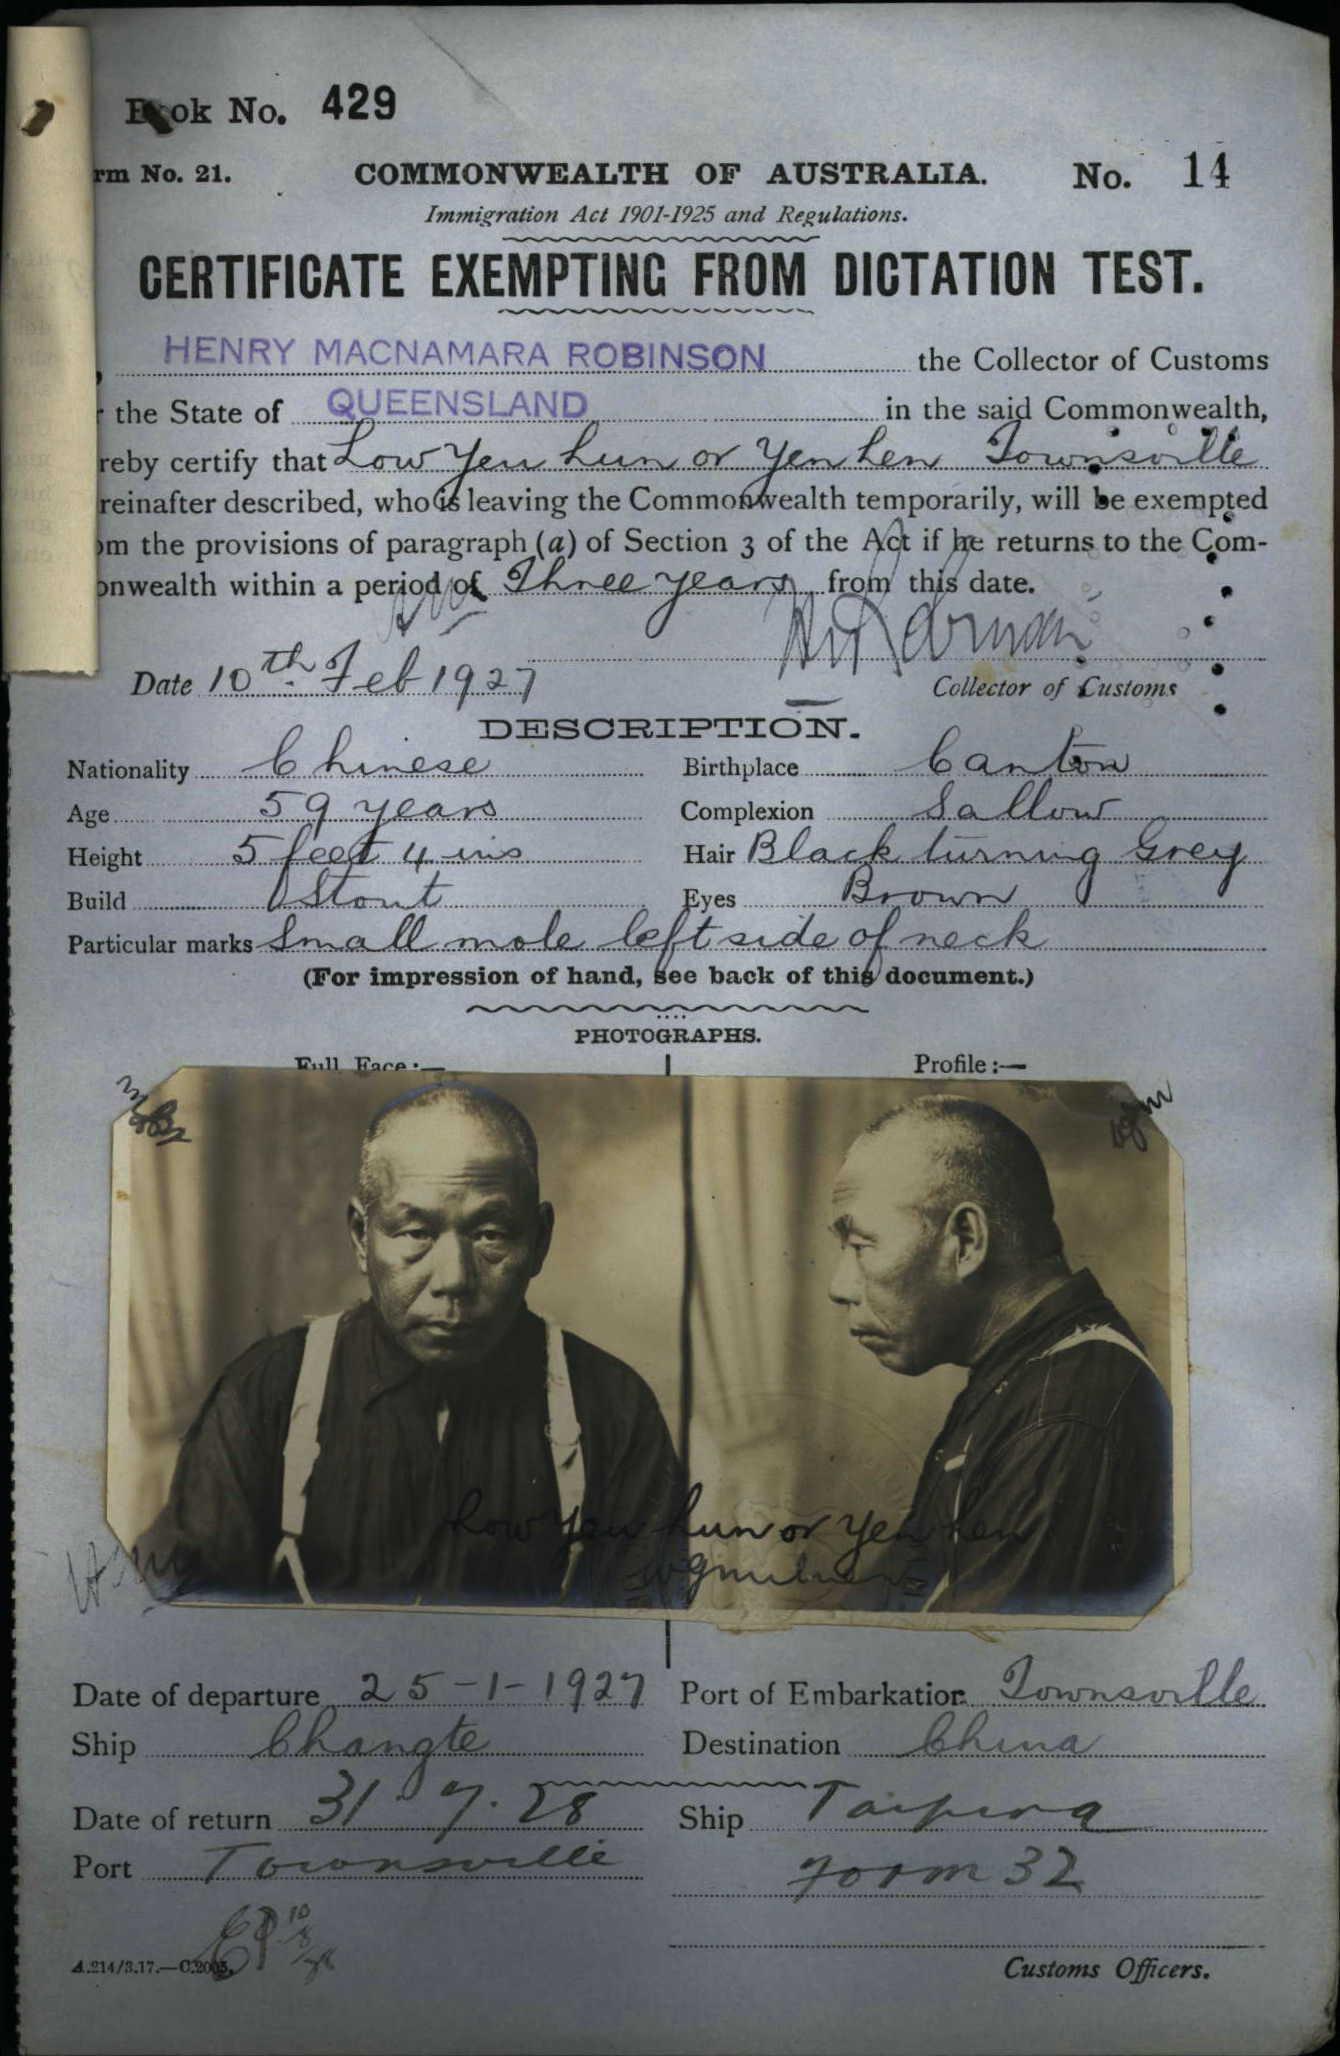 Book No. 429
rm No. 21. COMMONWEALTH OF AUSTRALIA. No. 14
Immigration Act 1901-1925 and Regulations.
CERTIFICATE EXEMPTING FROM DICTATION TEST.
HENRY MACNAMARA ROBINSON the Collector of Customs
the State of QUEENSLAND in the said Commonwealth,
reby certify that Low Yen hun or Yen hen Townsville
reinafter described, who is leaving the Commonwealth temporarily, will be exempted
om the provisions of paragraph (a) of Section 3 of the Act if he returns to the Com-
onwealth within a period of Three years from this date.
Date 10th Feb 1927
Collector of Customs
DESCRIPTION.
Nationality Chinese Birthplace Canton
Age 59 years Complexion Sallow
Height 5 feet 4 ins Hair Black turning Grey
Build Stout Eyes Brown
Particular marks Small mole left side of neck
(For impression of hand, see back of this document.)
PHOTOGRAPHS.
Full Face:— Profile:—
Low Yen hun or Yen hen
Date of departure 25-1-1927 Port of Embarkation Townsville
Ship Changte Destination China
Date of return 31.7.28 Ship Taiping
Port Townsville Form 32
A.214/3.17.—C.2005. Customs Officers.